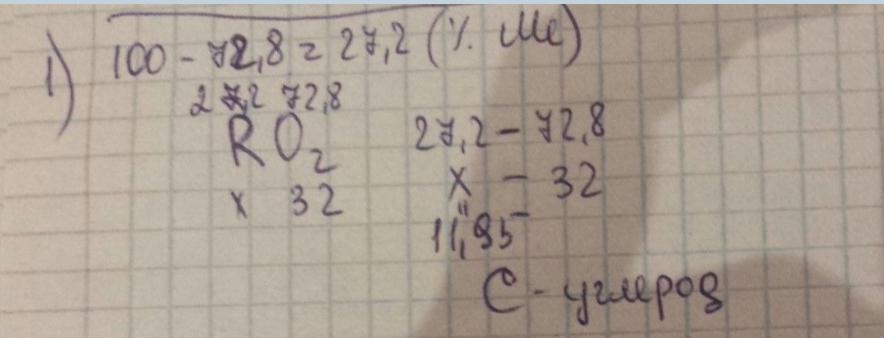 1) 100 - 72,8 = 27,2 (% Me)
27,2 72,8
RO₂
x 32
27,2 - 72,8
x - 32
"
11,95
C - углерод